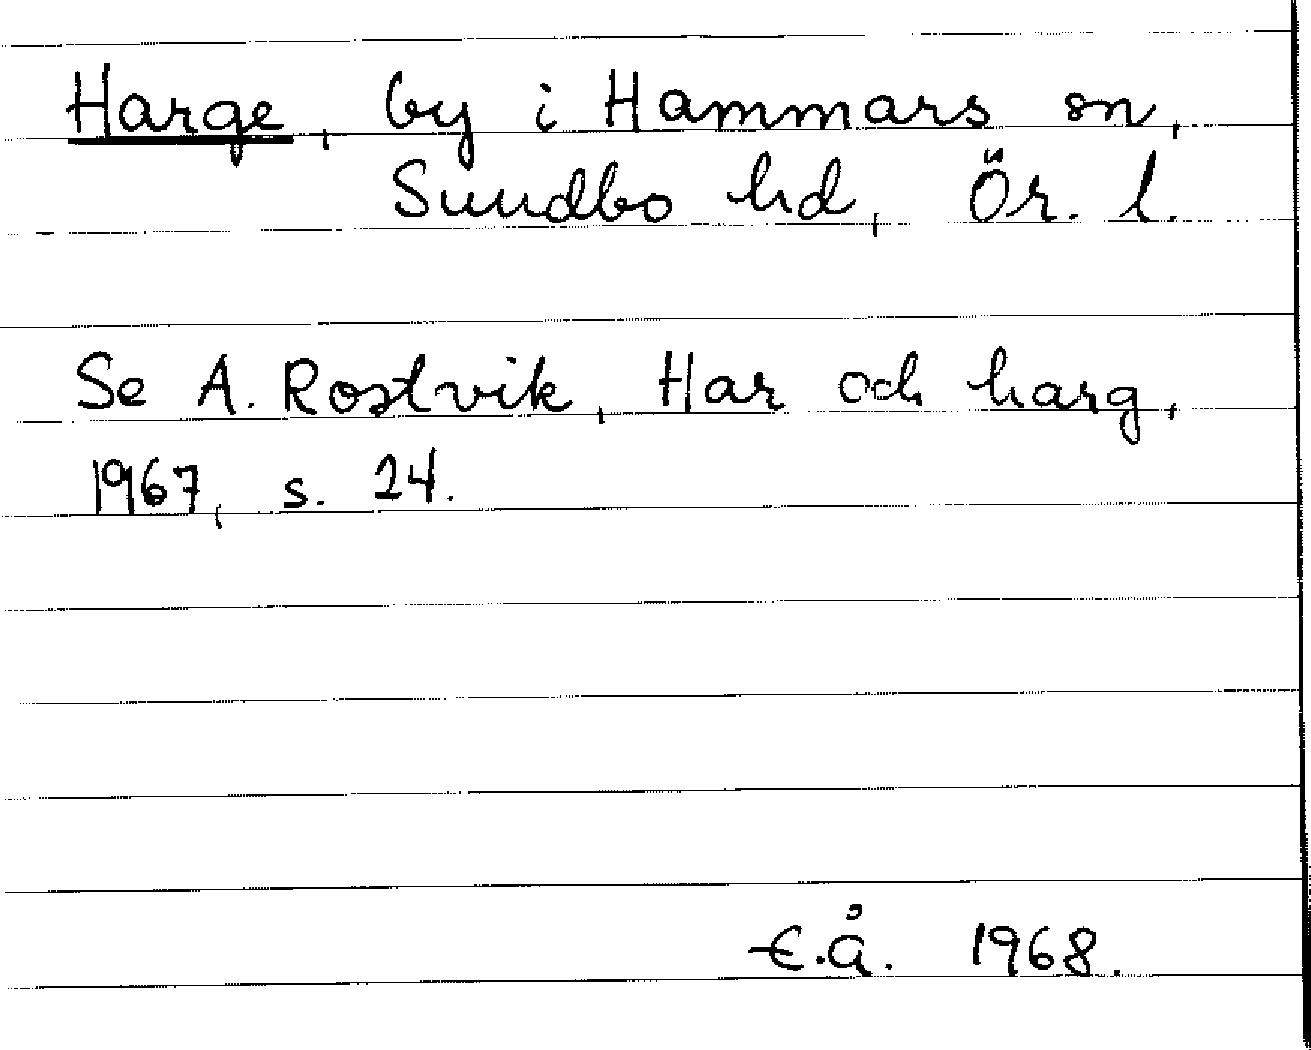 Harge, by i Hammars sn,
Sundbo hd, Ör. l.
Se A. Rostvik, Har och harg,
1967, s. 24.
E.Å. 1968.